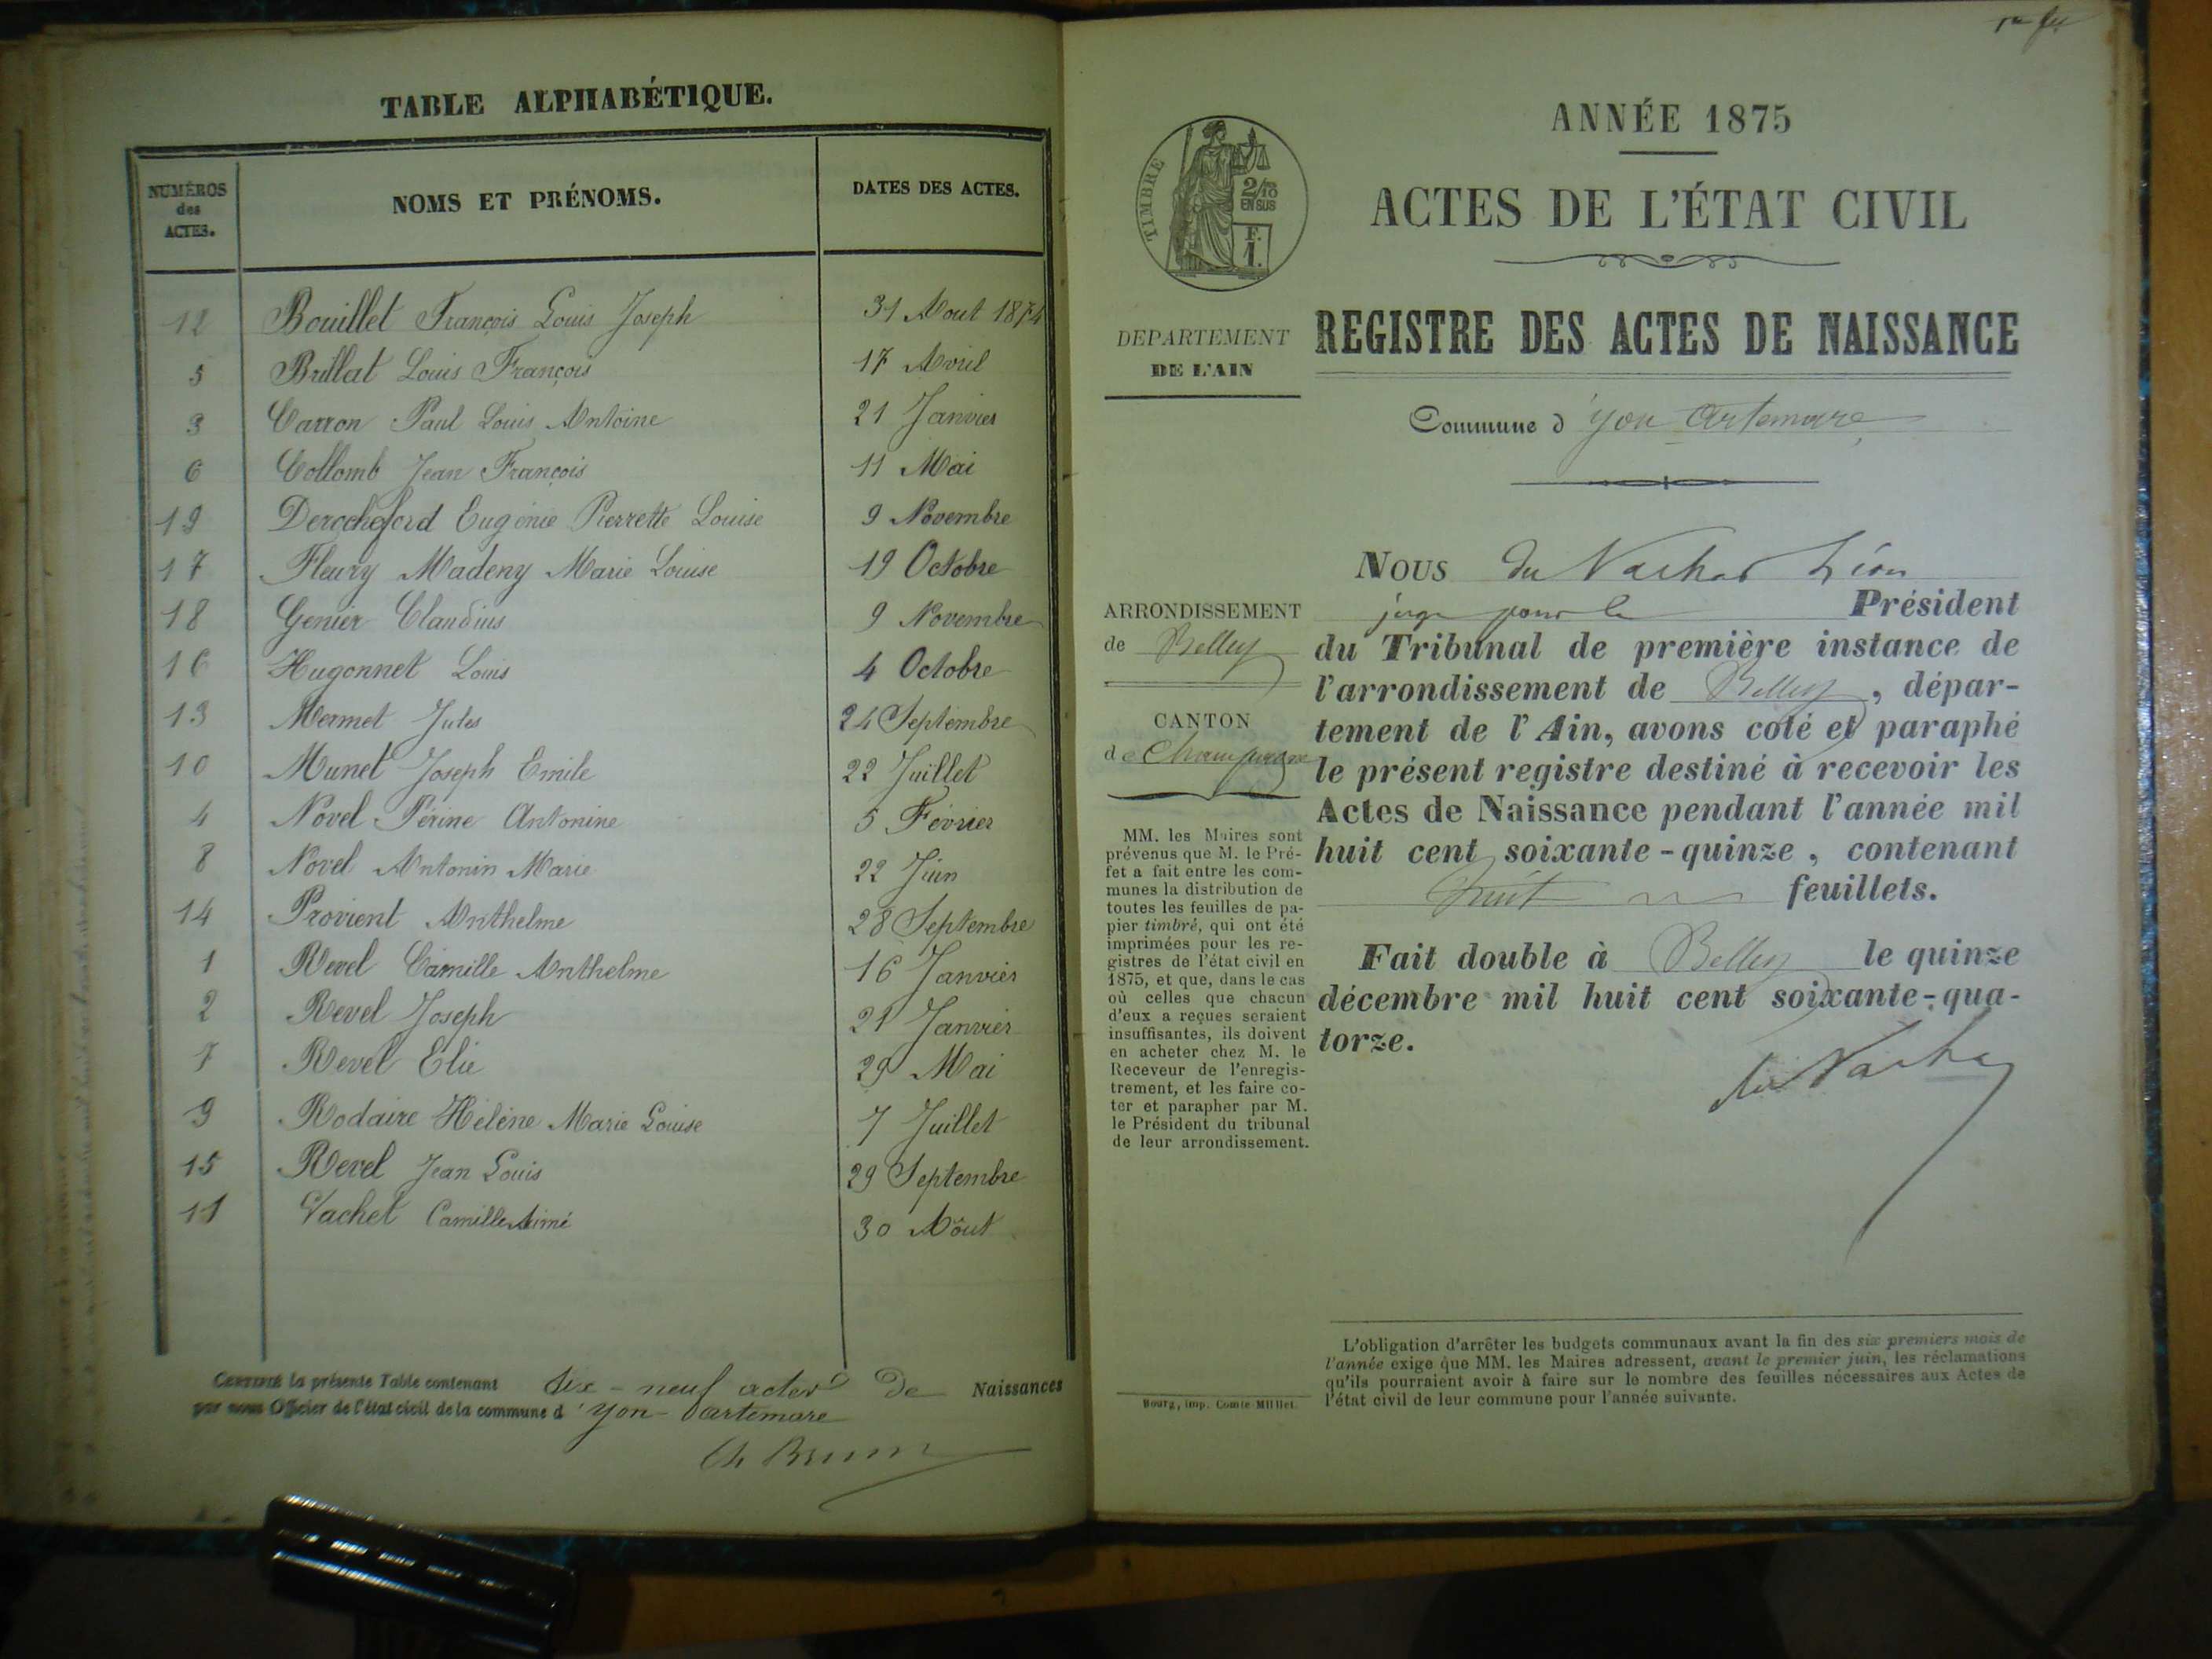 TABLE ALPHABÉTIQUE.
NUMÉROS des ACTES. NOMS ET PRÉNOMS. DATES DES ACTES.
12 Bouillet François Louis Joseph 31 Aout 1874
5 Brillat Louis François 17 Avril
3 Carron Paul Louis Antoine 21 Janvier
6 Collomb Jean François 11 Mai
19 Derocheford Eugénie Pierrette Louise 9 Novembre
17 Fleury Madeny Marie Louise 19 Octobre
18 Genier Claudius 9 Novembre
16 Hugonnet Louis 4 Octobre
13 Mermet Jules 24 Septembre
10 Munet Joseph Emile 22 Juillet
4 Novel Périne Antonine 5 Février
8 Novel Antonin Marie 22 Juin
14 Provient Anthelme 28 Septembre
1 Revel Camille Anthelme 16 Janvier
2 Revel Joseph 21 Janvier
7 Revel Elie 29 Mai
9 Rodaire Hélène Marie Louise 7 Juillet
15 Revel Jean Louis 29 Septembre
11 Vachet Camille Aimé 30 Aôut
CERTIFIÉ la présente Table contenant dix-neuf actes de Naissances
par nous Officier de l'état civil de la commune d'Yon-Vartemare
Ch Brun
ANNÉE 1875
ACTES DE L'ÉTAT CIVIL
REGISTRE DES ACTES DE NAISSANCE
Commune d'yon Artemare
TIMBRE
2/10
EN SUS
F.
1.
DEPARTEMENT
DE L'AIN
ARRONDISSEMENT
de Belley
CANTON
de Champagne
MM. les Maires sont
prévenus que M. le Pré-
fet a fait entre les com-
munes la distribution de
toutes les feuilles de pa-
pier timbré, qui ont été
imprimées pour les re-
gistres de l'état civil en
1875, et que, dans le cas
où celles que chacun
d'eux a reçues seraient
insuffisantes, ils doivent
en acheter chez M. le
Receveur de l'enregis-
trement, et les faire co-
ter et parapher par M.
le Président du tribunal
de leur arrondissement.
Bourg, imp. Comte Milliet.
NOUS du Vachat Léon
juge pour le Président
du Tribunal de première instance de
l'arrondissement de Belley, dépar-
tement de l'Ain, avons coté et paraphé
le présent registre destiné à recevoir les
Actes de Naissance pendant l'année mil
huit cent soixante-quinze, contenant
huit feuillets.
Fait double à Belley le quinze
décembre mil huit cent soixante-qua-
torze.
du Vachat
L'obligation d'arrêter les budgets communaux avant la fin des six premiers mois de
l'année exige que MM. les Maires adressent, avant le premier juin, les réclamations
qu'ils pourraient avoir à faire sur le nombre des feuilles nécessaires aux Actes de
l'état civil de leur commune pour l'année suivante.